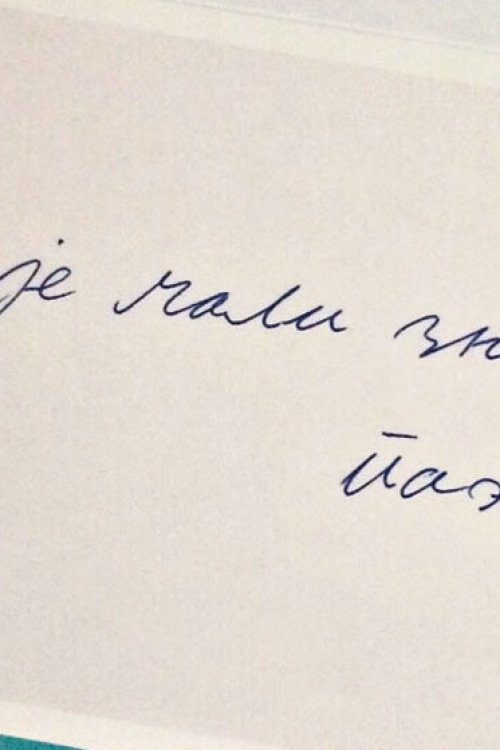 је мали зн
паж